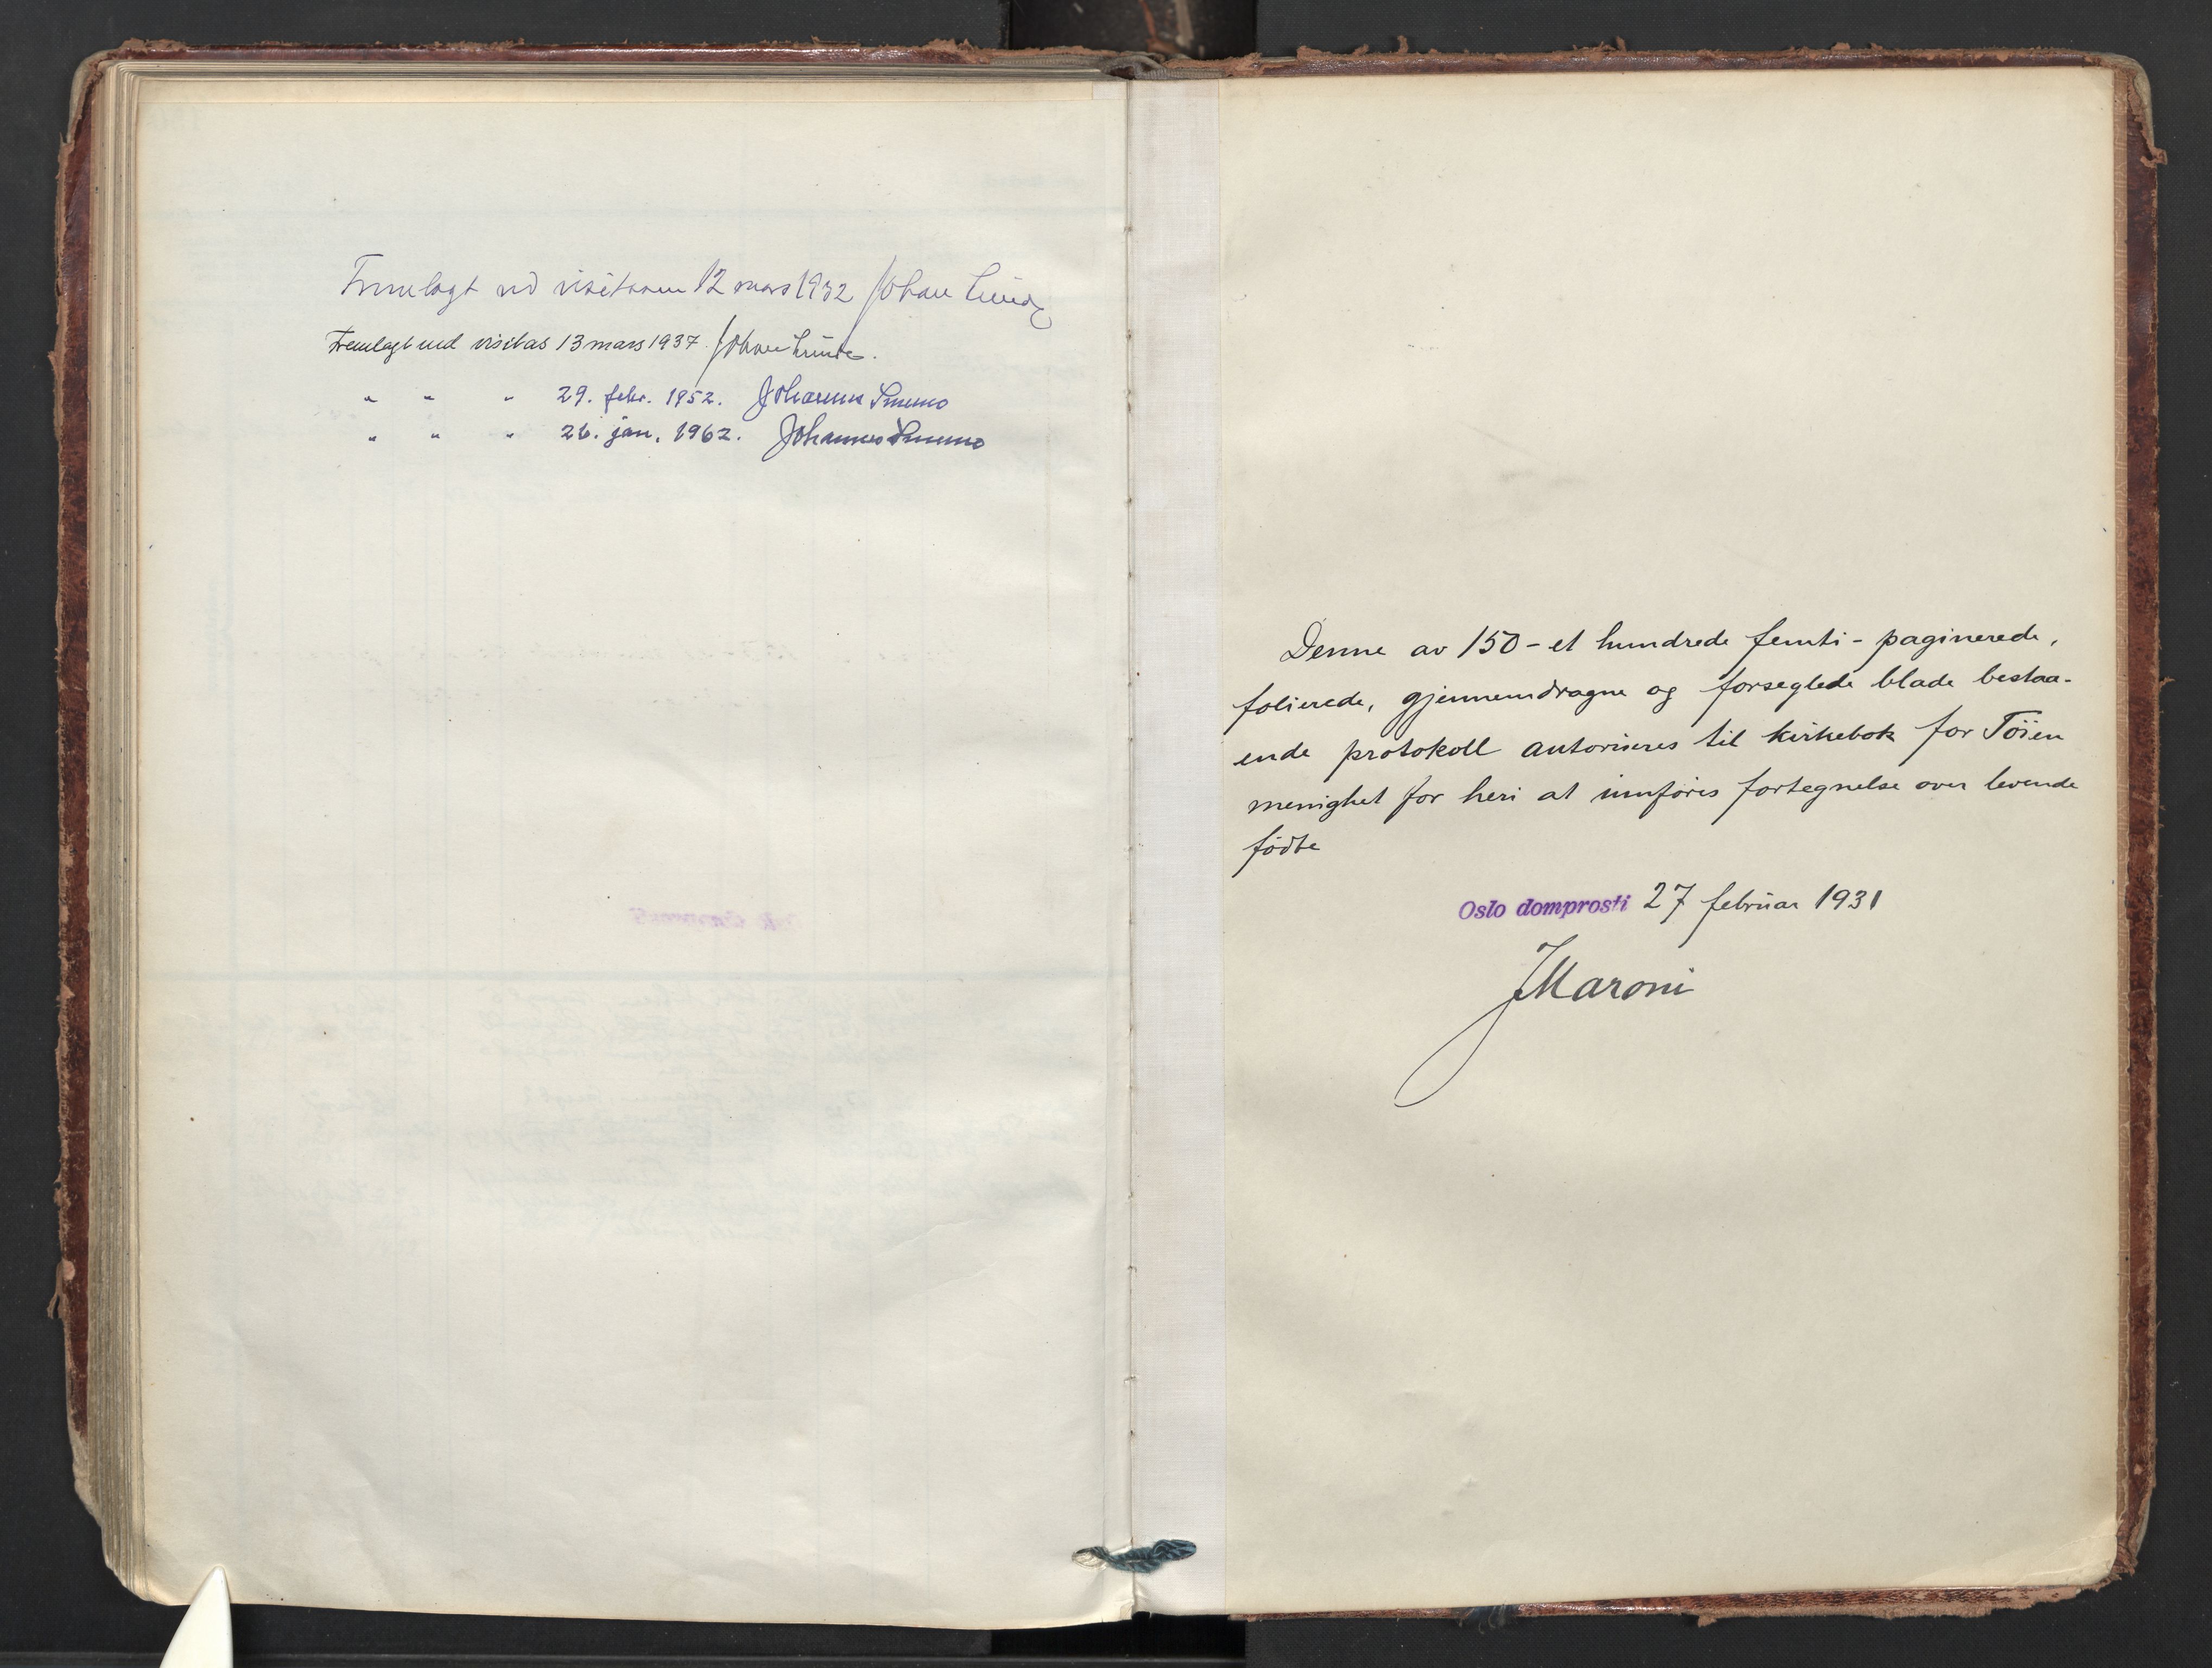 Fremlagt ved visitasen 12 mars 1932 Johan Lunde
Fremlagt ved visitas 13 mars 1937. Johan Lunde.
" " " 29. febr. 1952. Johannes Smemo
" " " 26. jan. 1962. Johannes Smemo
Denne av 150 - et hundrede femti - paginerede,
folierede, gjennemdragne og forseglede blade bestaa-
ende protokoll autoriseres til kirkebok for Töien
menighet for heri at innføres fortegnelse over levende
födte
Oslo domprosti 27 februar 1931
J Maroni